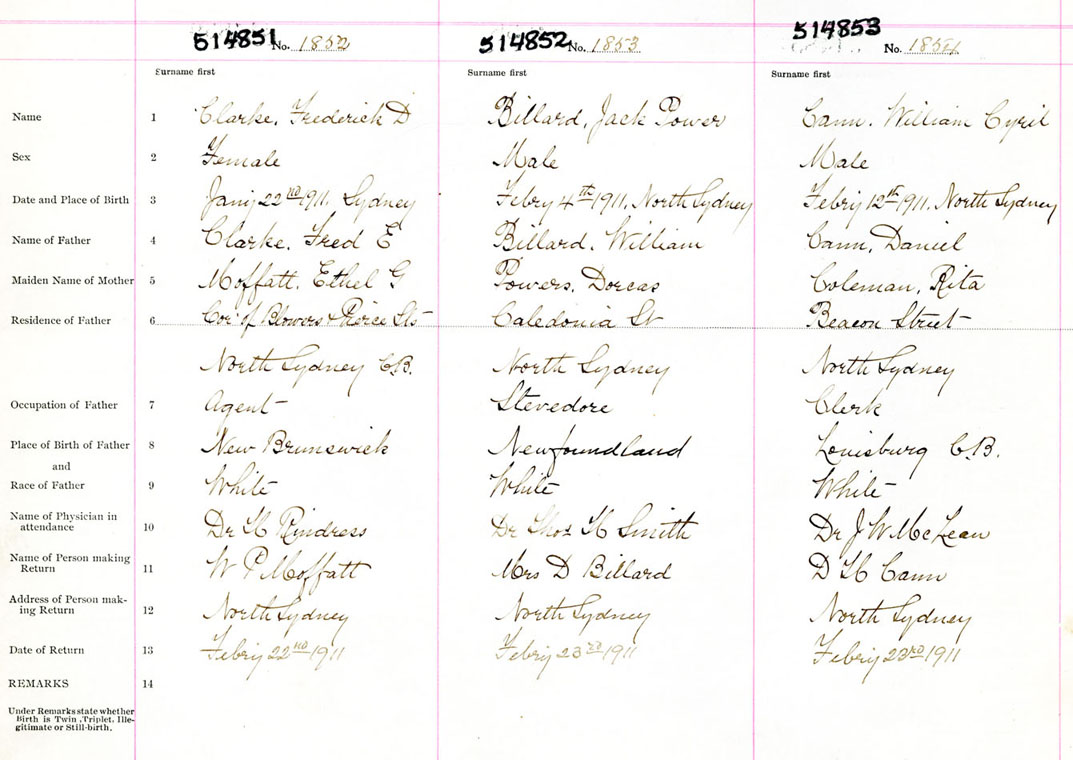 514851 No. 1852 514852 No. 1853 514853 No. 1854
Surname first Surname first Surname first
Name 1 Clarke, Frederick D Billard, Jack Power Cann. William Cyril
Sex 2 Female Male Male
Date and Place of Birth 3 Jany 22nd 1911. Sydney Febry 4th 1911. North Sydney Febry 12th 1911. North Sydney
Name of Father 4 Clarke, Fred E Billard, William Cann, Daniel
Maiden Name of Mother 5 Moffatt, Ethel G Powers, Dorcas Coleman, Rita
Residence of Father 6 Cor of Blowers & Pierce Sts Caledonia St Beacon Street
North Sydney C.B. North Sydney North Sydney
Occupation of Father 7 Agent Stevedore Clerk
Place of Birth of Father 8 New Brunswick Newfoundland Louisburg C.B.
and
Race of Father 9 White White White
Name of Physician in
attendance 10 Dr H Rindress Dr Thos H Smith Dr J W McLean
Name of Person making
Return 11 W P Moffatt Mrs D Billard D H Cann
Address of Person mak-
ing Return 12 North Sydney North Sydney North Sydney
Date of Return 13 Febry 22nd 1911 Febry 23rd 1911 Febry 23rd 1911
REMARKS 14
Under Remarks state whether
Birth is Twin, Triplet, Ille-
gitimate or Still-birth.